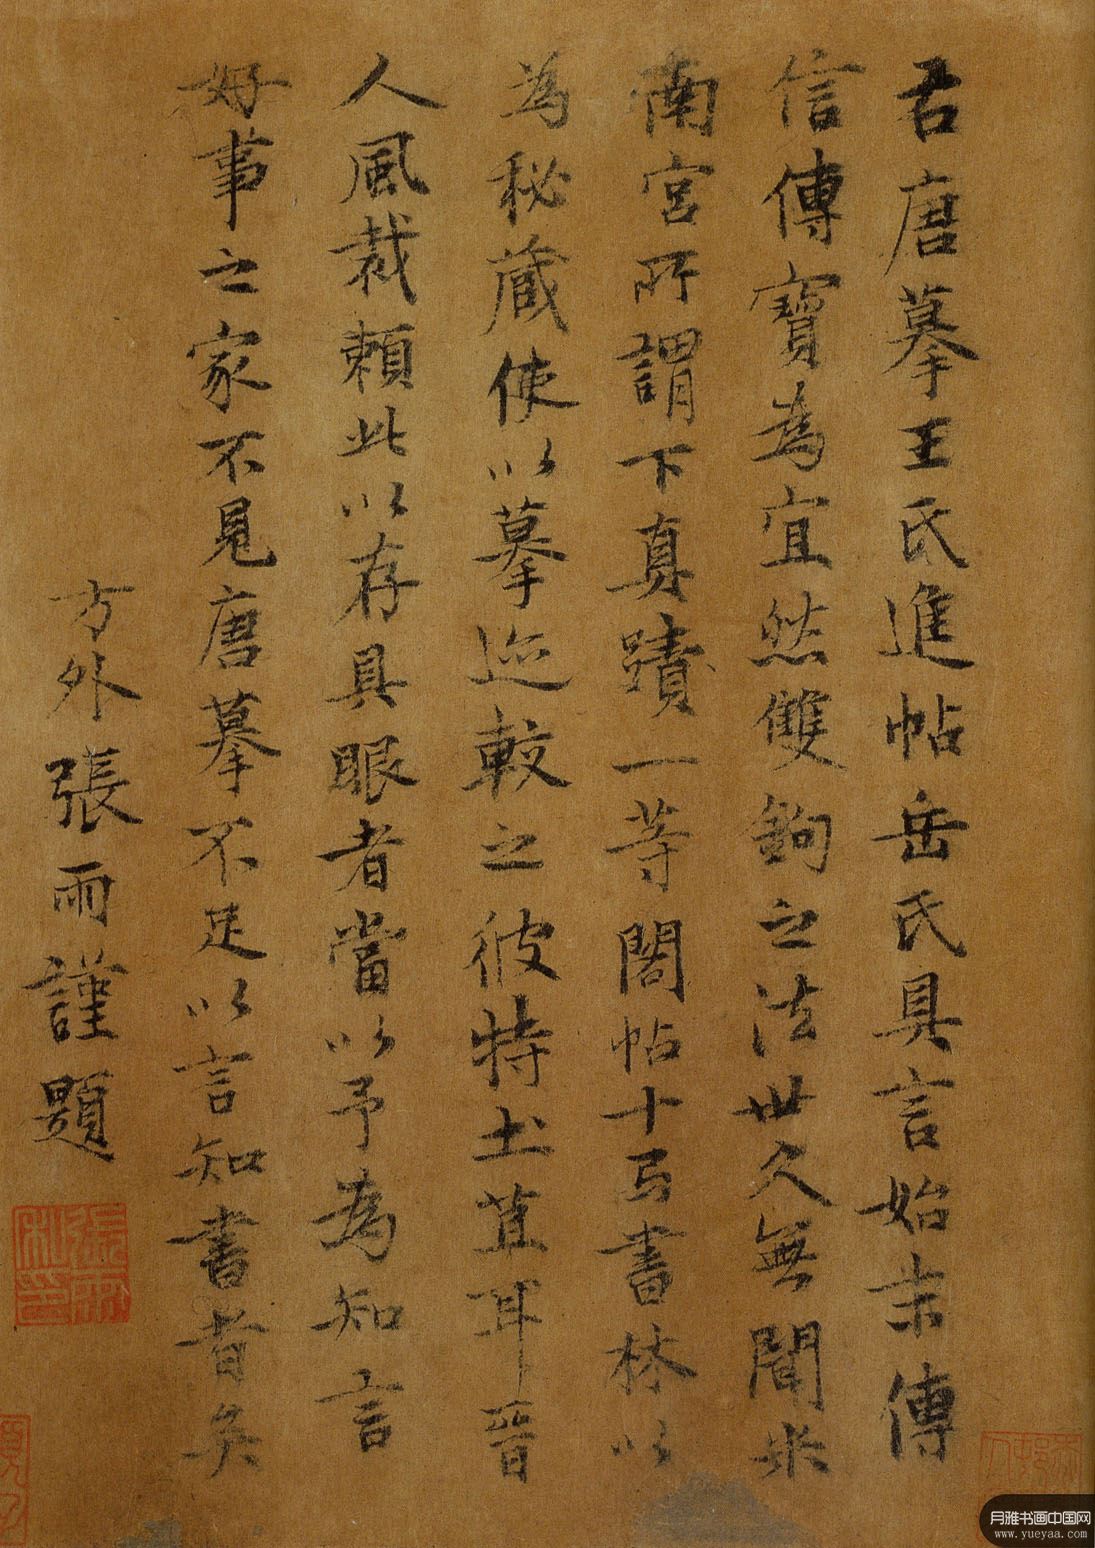 右唐摹王氏進帖岳氏具言始末傳
信傳寶為宜然雙鉤之法世久無聞米
南宮所謂下真蹟一等閣帖十弓書林以
為秘藏使以摹迹較之彼特土苴耳晉
人風裁賴此以存具眼者當以予為知言
好事之家不見唐摹不足以言知書者矣
方外張雨謹題
張雨私印
月雅书画中国网
www.yueyaa.com